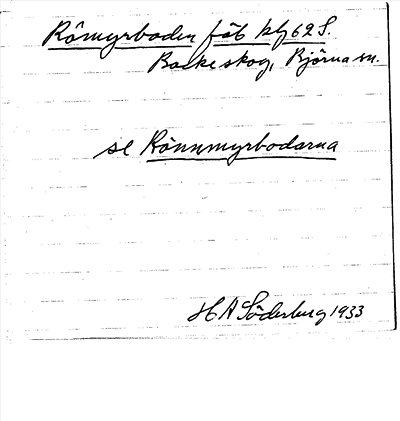 Römyrboden fäb kbl 62 S.
Backeskog, Björna sn.
se Rönnmyrbodarna
H A Söderberg 1933